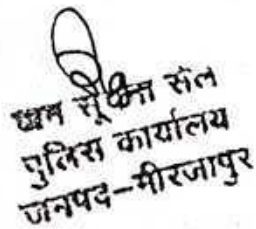 जन सूचना सेल
पुलिस कार्यालय
जनपद-मीरजापुर